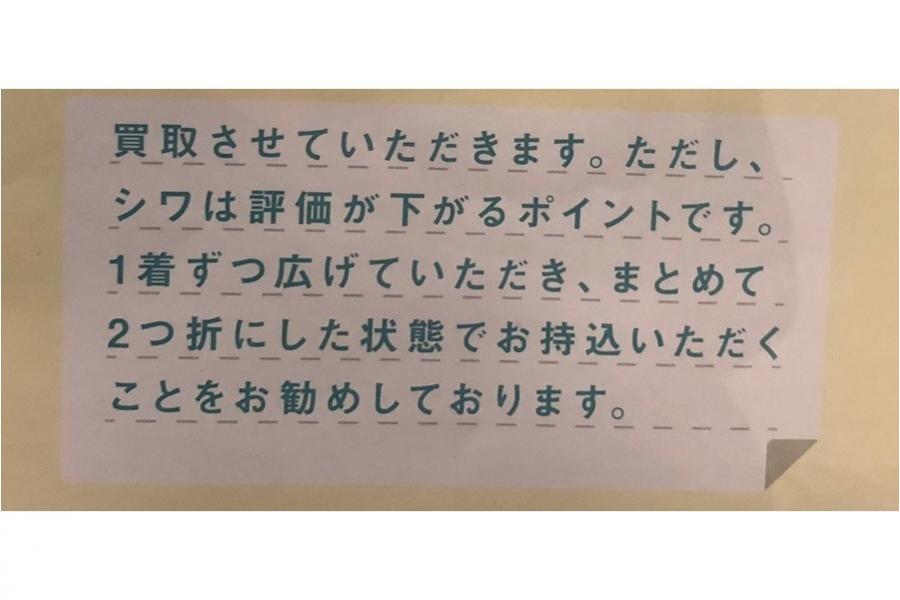 買取させていただきます。ただし、
シワは評価が下がるポイントです。
1着ずつ広げていただき、まとめて
2つ折にした状態でお持込いただく
ことをお勧めしております。